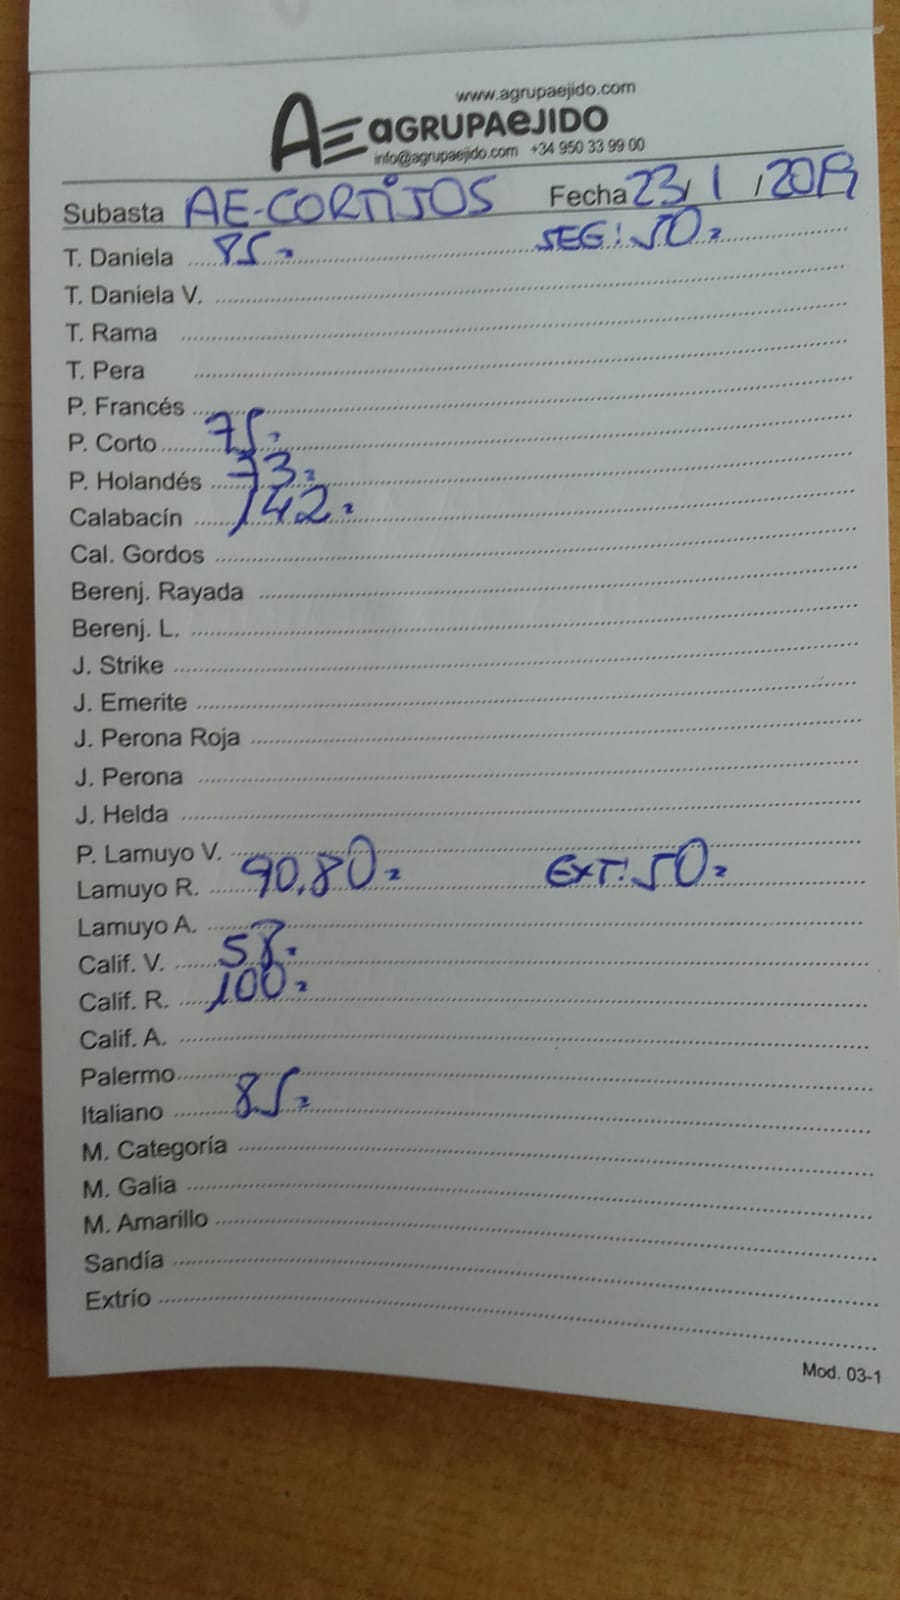 www.agrupaejido.com
AE aGRUPAeJIDO
info@agrupaejido.com +34 950 33 99 00
Subasta AE-CORTIJOS Fecha 23/1/2019
T. Daniela 85.- SEG: 50.-
T. Daniela V.
T. Rama
T. Pera
P. Francés
P. Corto 75.-
P. Holandés 73.-
Calabacín 142.-
Cal. Gordos
Berenj. Rayada
Berenj. L.
J. Strike
J. Emerite
J. Perona Roja
J. Perona
J. Helda
P. Lamuyo V.
Lamuyo R. 90.80.- EXT: 50.-
Lamuyo A.
Calif. V. 58.-
Calif. R. 100.-
Calif. A.
Palermo
Italiano 85.-
M. Categoría
M. Galia
M. Amarillo
Sandía
Extrío
Mod. 03-1